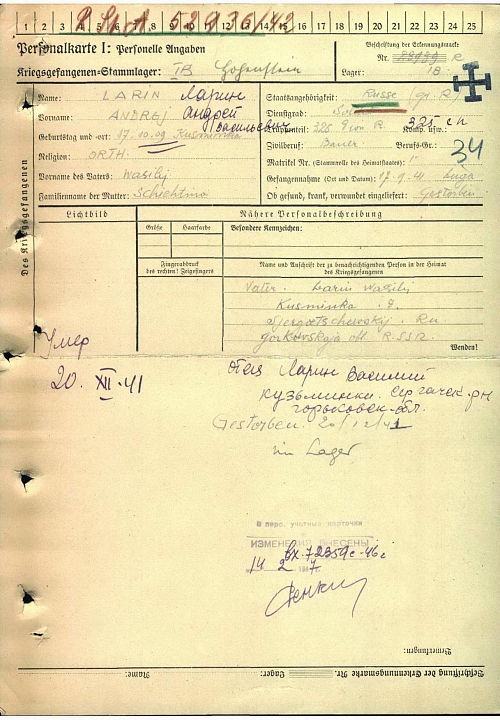 1 2 3 4 5 6 7 8 9 10 11 12 13 14 15 16 17 18 19 20 21 22 23 24 25
52936/42
Personalkarte I: Personelle Angaben
Kriegsgefangenen-Stammlager: IB Hohenstein
Beschriftung der Erkennungsmarke
Nr. R
Lager: IB
Des Kriegsgefangenen
Name: LARIN Ларин
Vorname: ANDREJ Андрей
Васильевич
Geburtstag und -ort: 17.10.09 Kusminka
Religion: ORTH.
Vorname des Vaters: Wasilij
Familienname der Mutter: Schichtina
Staatsangehörigkeit: Russe
Dienstgrad:
Truppenteil: 325 R Komp. usw.
325 сп
Zivilberuf: Bauer Berufs-Gr.:
34
Matrikel Nr. (Stammrolle des Heimatstaates):
Gefangennahme (Ort und Datum): 17.9.41 Luga
Ob gesund, krank, verwundet eingeliefert: Gestorben
Lichtbild
Nähere Personalbeschreibung
Größe Haarfarbe Besondere Kennzeichen:
Fingerabdruck
des rechten! Zeigefingers
Name und Anschrift der zu benachrichtigenden Person in der Heimat
des Kriegsgefangenen
Vater. Larin Wasilij
Kusminka
Gorkovskaja obl. RSSR.
Wenden!
Умер
20. XII.41
Отец Ларин Василий
Кузьминки. Сергачек. рн
горьковск. обл.
Gestorben. 20/12/41
im Lager
В перс. учетные карточки
ИЗМЕНЕНИЯ ВНЕСЕНЫ
Вх. 72359с-46г
14 2 1947.
Bemerkungen:
Beschriftung der Erkennungsmarke Nr. Lager: Name: